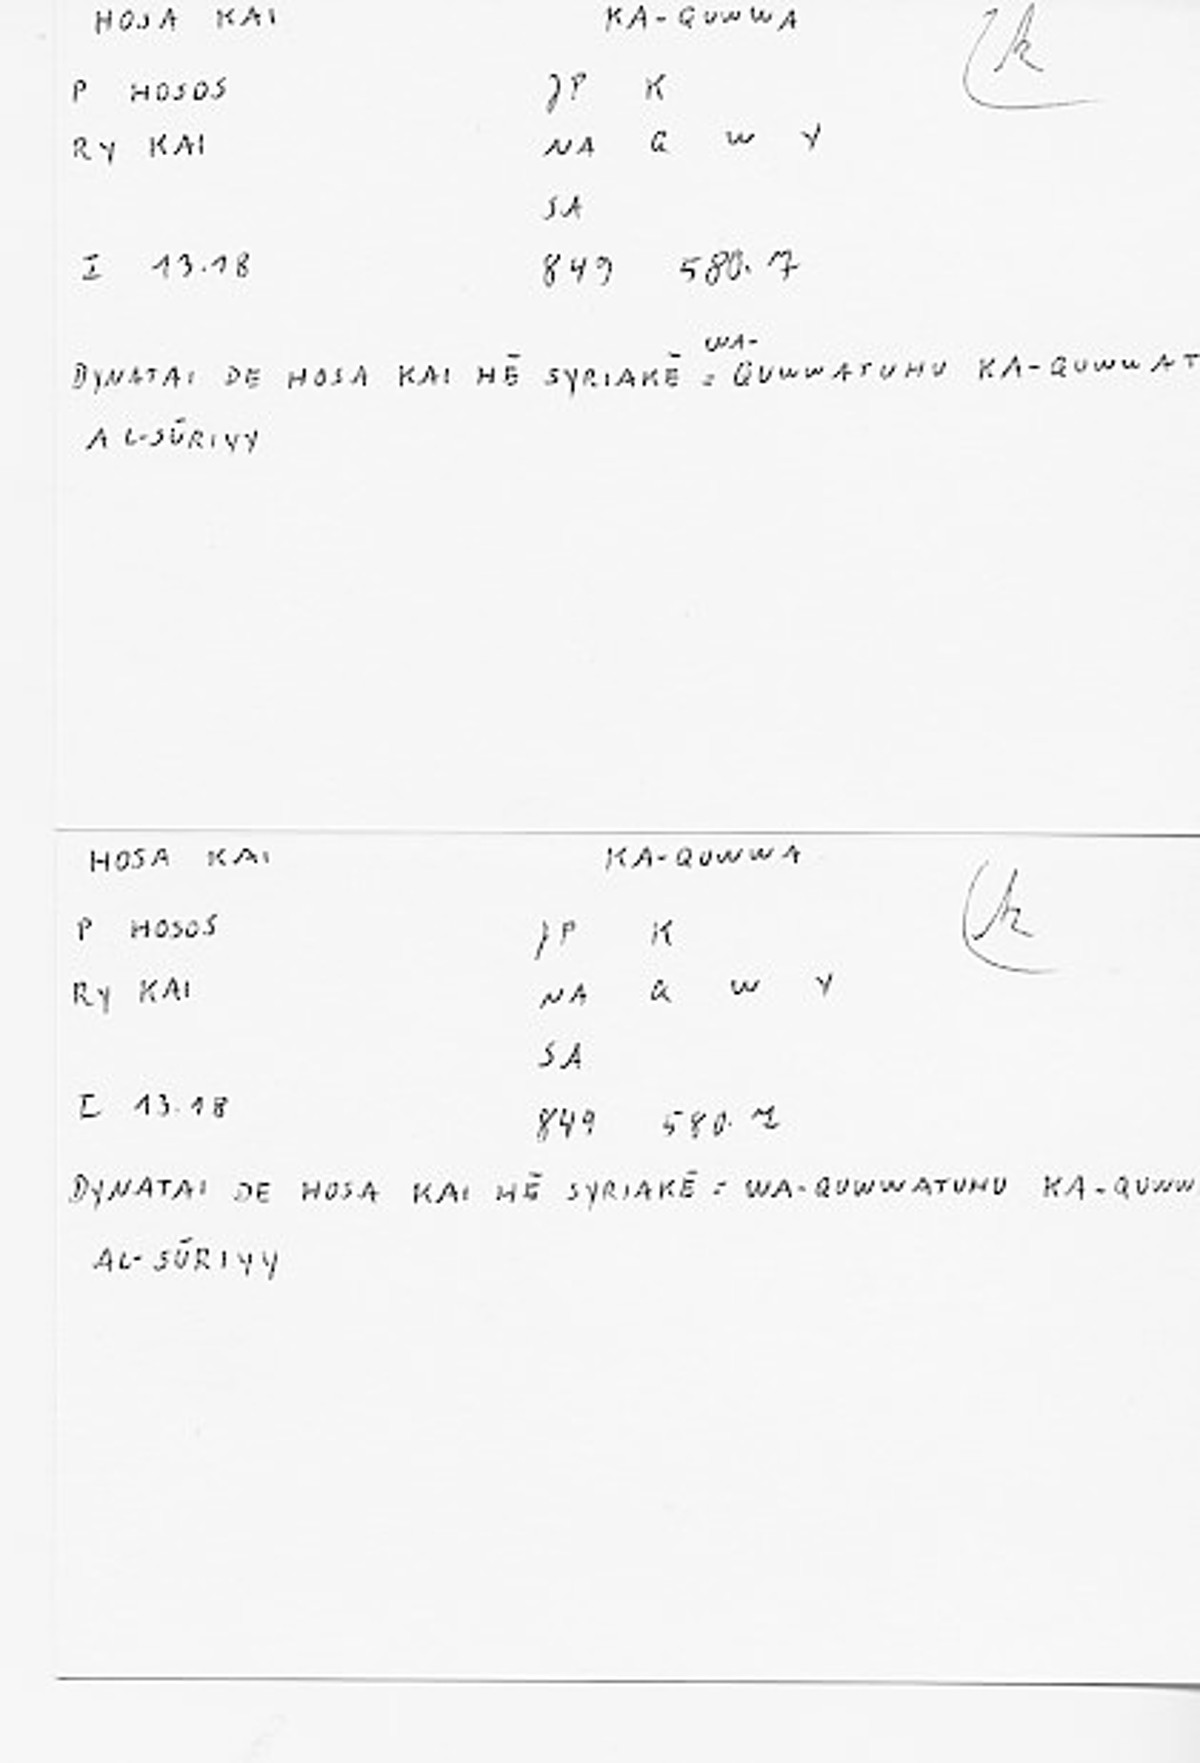 HOSA KAI KA-QUWWA k
P HOSOS JP K
Ry KAI NA Q W Y
SA
I 13.18 849 580.7
WA-
DYNATAI DE HOSA KAI HĒ SYRIAKĒ = QUWWATUHU KA-QUWWAT
AL-SŪRIYY
HOSA KAI KA-QUWWA k
P HOSOS JP K
Ry KAI NA Q W Y
SA
I 13.18 849 580.7
DYNATAI DE HOSA KAI HĒ SYRIAKĒ = WA-QUWWATUHU KA-QUWW
AL-SŪRIYY